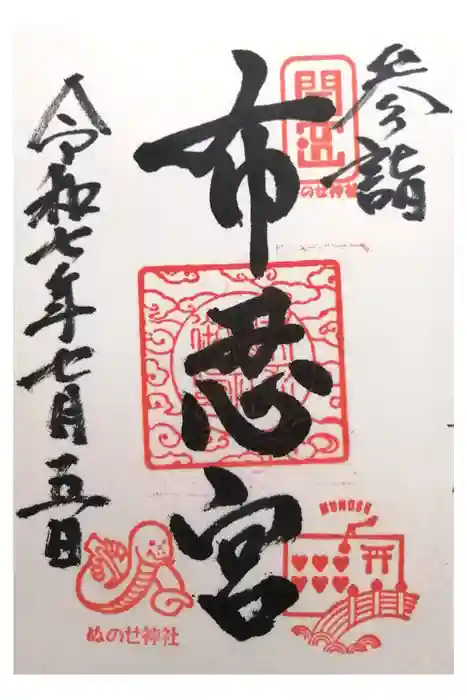 参詣
開運
布忍宮
令和七年七月五日
ぬのせ神社
NUNOSE